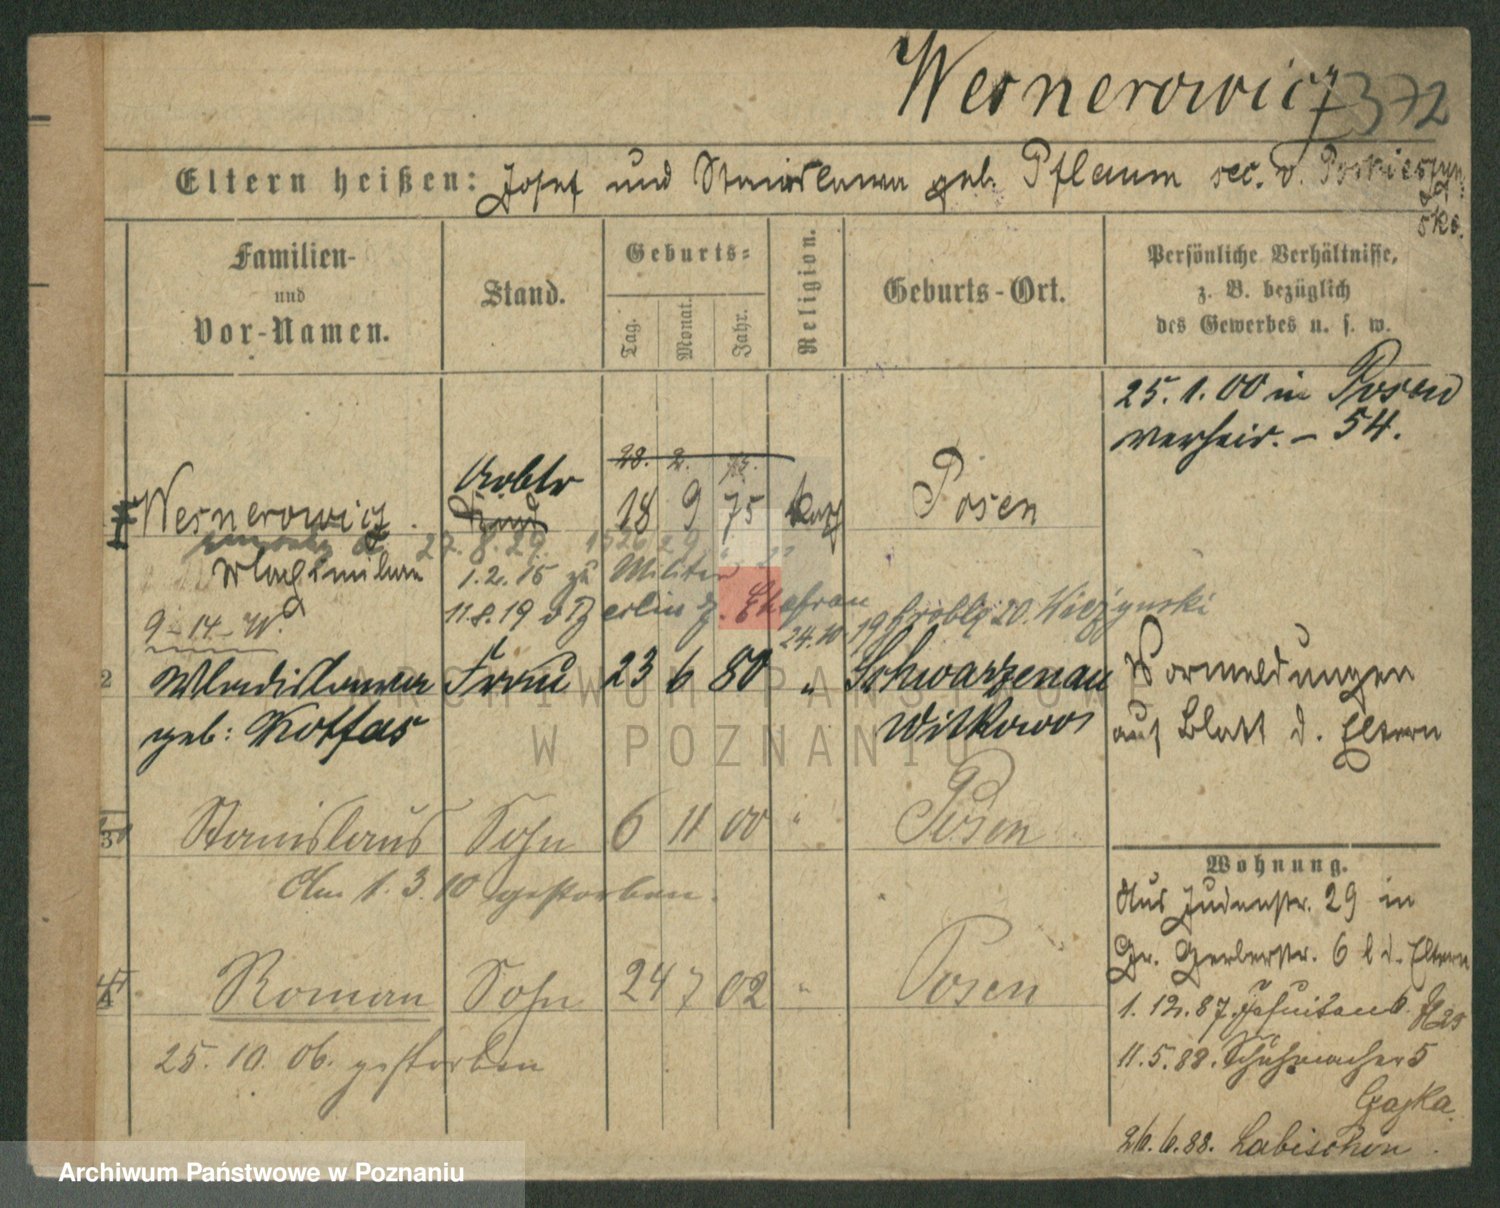 Wernerowicz 372
Eltern heißen: Josef und Stanislawa geb. Pflaum sec. v.
ska.
Familien-
und
Vor-Namen.
Stand.
Geburts-
Tag.
Monat.
Jahr.
Religion.
Geburts-Ort.
Persönliche Verhältnisse,
z. B. bezüglich
des Gewerbes u. s. w.
25. 1. 00 in Posen
verheir. - 54.
28. 2. 75.
Wernerowicz Arbtr Kind 18 9 75 kath Posen
27. 8. 29.
1. 2. 15 zu Militär
11. 8. 19 Berlin z. Ehefrau
24. 10. 19 20.
9 - 14 - W.
2 Wladislawa Frau 23 6 80 " Schwarzenau
geb: Kottas Witkowo
Vormeldungen
auf Blatt d. Eltern
3 Stanislaus Sohn 6 11 00 " Posen
Am 1. 3. 10 gestorben.
Wohnung.
Aus Judenstr. 29 in
Gr. Gerberstr. 6 b d. Eltern
4 Roman Sohn 24 7 02 " Posen
25. 10. 06. gestorben
1. 12. 87.
11. 5. 88. Schuhmacher 5
Czajka.
26. 6. 88. Labischin.
ARCHIWUM PAŃSTWOWE
W POZNANIU
Archiwum Państwowe w Poznaniu